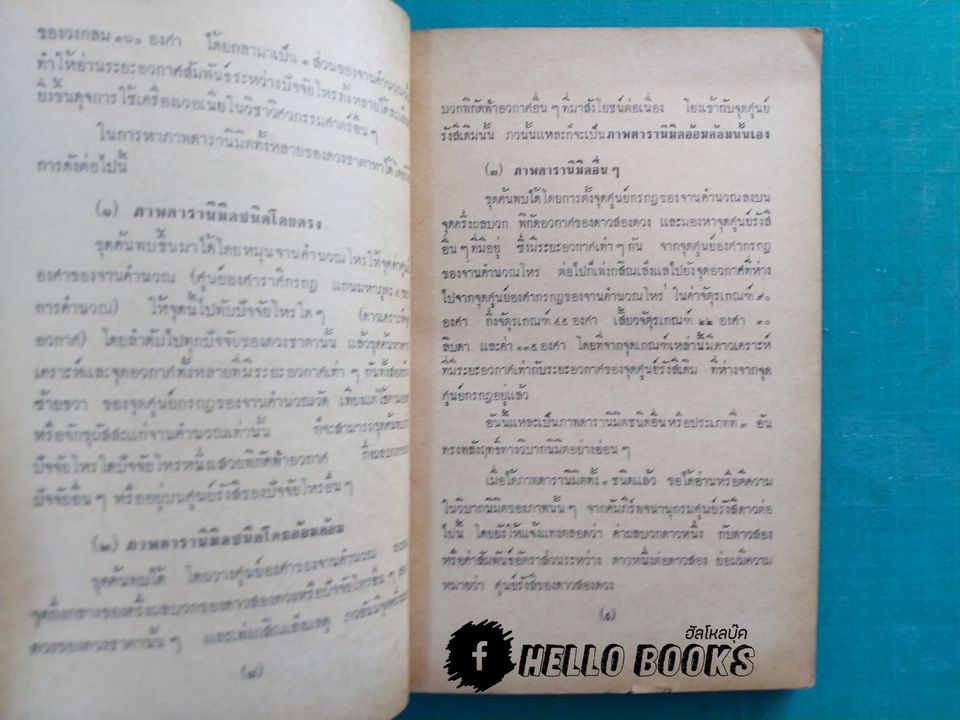 ของวงกลม ๓๖๐ องศา ได้ยกลามาเป็น ๑ ส่วนของจานคำนวณ
ทำให้อ่านระยะอวกาศสัมพันธ์ระหว่างปัจจัยโหรทั้งหลายได้
ยิ่งขึ้นดุจการใช้เครื่องเวอเนียในวิชาวิศวกรรมศาตร์อื่น ๆ
ในการหาภาพดารานิมิตทั้งหลายของดวงชาตาหาได้
การดังต่อไปนี้
(๑) ภาพดารานิมิตชนิดโดยตรง
ชุดค้นพบขึ้นมาได้โดยหมุนจานคำนวณโหรให้จุด
องศาของจานคำนวณ (ศูนย์องศาราศีกรกฎ แกนมหาบูตร
การคำนวณ) ให้จุดนี้ไปทับปัจจัยโหรใด ๆ
อวกาศ) โดยลำดับไปทุกปัจจัยของดวงชาตานั้น แล้ว
เคราะห์และจุดอวกาศทั้งหลายที่มีระยะอวกาศเท่า ๆ กัน
ซ้ายขวา ของจุดศูนย์กรกฎของจานคำนวณวัด เทียง
หรือจักขุมัสสะแก่จานคำนวณเท่านั้น ก็จะสามารถ
ปัจจัยโหรใดปัจจัยโหรหนึ่งเสวยพิกัดฟ้าอวกาศ
ปัจจัยอื่น ๆ หรืออยู่บนศูนย์รังสีของปัจจัยโหรอื่น ๆ
(๒) ภาพดารานิมิตชนิดโดยอ้อมค้อม
ชุดค้นพบได้ โดยวางศูนย์องศาของจานคำนวณ
จุดกึ่งกลางของครึ่งผลบวกของดาวสองดวงหรือปัจจัยโหรอื่น ๆ
ดวงของดวงชาตานั้น ๆ และเพ่งกสิณเล็งแลดุ
(๘)
บวกพิกัดฟ้าอวกาศอื่น ๆ ที่มาสังโยชน์ต่อเนื่อง โยงเข้ากับจุดศูนย์
รังสีเดิมนั้น ภวนั้นแหละก็จะเป็นภาพดารานิมิตอ้อมค้อมนั้นเอง
(๓) ภาพดารานิมิตอื่น ๆ
ชุดค้นพบได้โดยการตั้งจุดศูนย์กรกฎของจานคำนวณลงบน
จุดครึ่งผลบวก พิกัดอวกาศของดาวสองดวง และมองหาจุดศูนย์รังสี
อื่น ๆ ที่มีอยู่ ซึ่งมีระยะอวกาศเท่า ๆ กัน จากจุดศูนย์องศากรกฎ
ของจานคำนวณโหร ต่อไปก็เพ่งกสิณเล็งแลไปยังจุดอวกาศที่ห่าง
ไปจากจุดศูนย์องศากรกฎของจานคำนวณโหร ในค่าจัตุรเกณฑ์ ๙๐
องศา กึ่งจัตุรเกณฑ์ ๔๕ องศา เสี้ยวจัตุรเกณฑ์ ๒๒ องศา ๓๐
ลิบดา และค่า ๑๓๕ องศา โดยที่จากจุดเกณฑ์เหล่านั้นมีดาวเคราะห์
ที่มีระยะอวกาศเท่ากับระยะอวกาศของจุดศูนย์รังสีเดิม ที่ห่างจากจุด
ศูนย์กรกฎอยู่แล้ว
อันนี้แหละเป็นภาพดารานิมิตชนิดอื่นหรือประเภทที่ ๓ อัน
ทรงสัมฤทธิ์ทางวิบากนิมิตอย่างอ่อน ๆ
เมื่อได้ภาพดารานิมิตทั้ง ๓ ชนิดแล้ว ขอได้อ่านหรือตีความ
ในวิบากนิมิตของภาพนั้น ๆ จากคัมภีร์พจนานุกรมศูนย์รังสีดาวต่อ
ไปนี้ โดยยังให้แจ้งแทงตลอดว่า ค่าผลบวกดาวหนึ่ง กับดาวสอง
หรือค่าสัมพันธ์อัตราส่วนระหว่าง ดาวหนึ่งต่อดาวสอง ย่อมมีความ
หมายว่า ศูนย์รังสีของดาวสองดวง
(๙)
ฮัลโหลบุ๊ค
f HELLO BOOKS